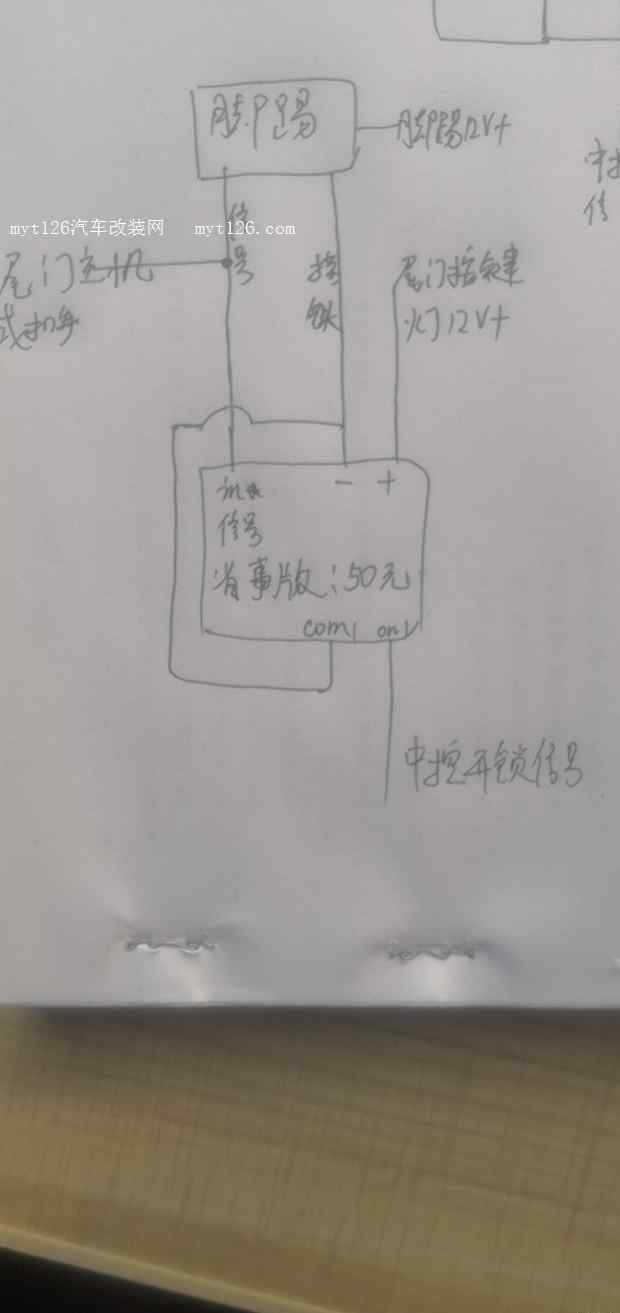 脚踢
脚踢12V+
中控
信
myt126汽车改装网 myt126.com
信号
尾门主机
或扣手
搭铁
尾门按键
灯12V+
- +
信号
省事版:50元
com1 on1
中控开锁信号